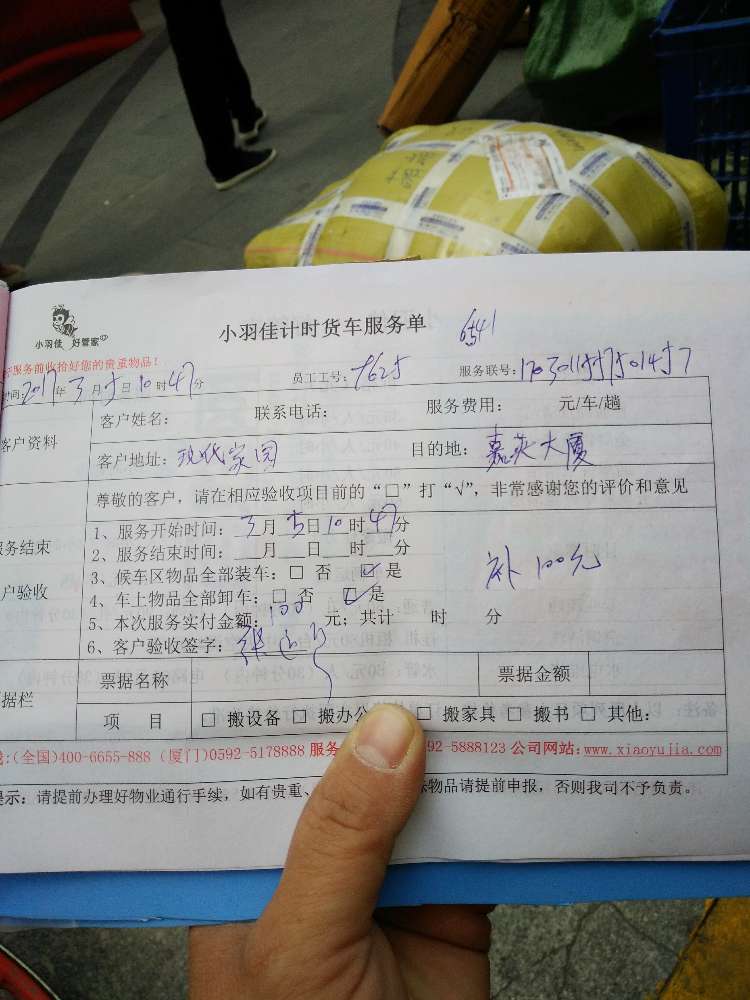 小羽佳计时货车服务单 6541
小羽佳 好管家
服务前收拾好您的贵重物品!
时间:2017年3月5日10时47分 员工工号: 服务联号:
客户资料 客户姓名: 联系电话: 服务费用: 元/车/趟
客户地址:现代家园 目的地:嘉英大厦
尊敬的客户,请在相应验收项目前的“□”打“√”,非常感谢您的评价和意见
服务结束
户验收
1、服务开始时间:3月5日10时47分
2、服务结束时间: 月 日 时 分
3、候车区物品全部装车:□ 否 ☑ 是
4、车上物品全部卸车:□ 否 ☑ 是
补100元
5、本次服务实付金额:100元;共计 时 分
6、客户验收签字:
据栏 票据名称 票据金额
项 目 □ 搬设备 □ 搬办公 □ 搬家具 □ 搬书 □ 其他:
线:(全国)400-6655-888 (厦门)0592-5178888 服务 92-5888123 公司网站:www.xiaoyujia.com
提示:请提前办理好物业通行手续,如有贵重、 物品请提前申报,否则我司不予负责。